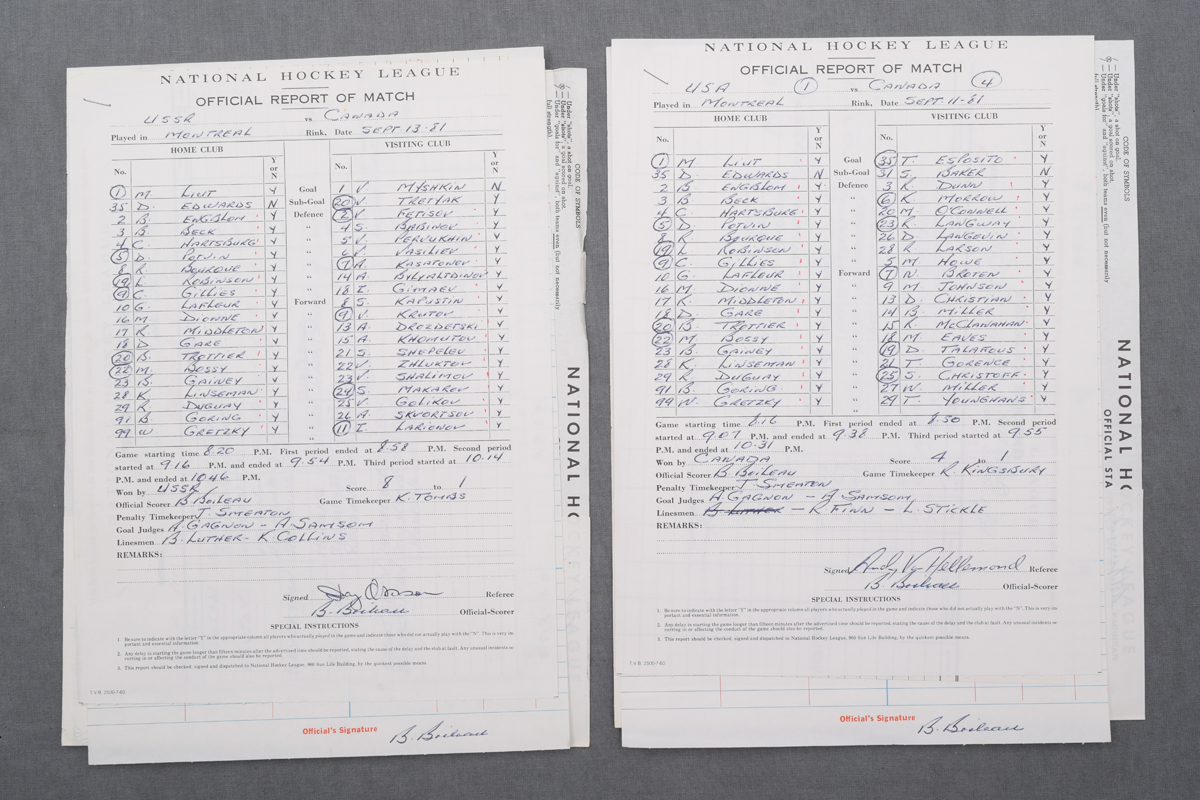 NATIONAL HOCKEY LEAGUE
OFFICIAL REPORT OF MATCH
USSR vs CANADA
Played in MONTREAL Rink, Date SEPT 13-81
HOME CLUB VISITING CLUB
No. Y or N No. Y or N
1 M LIUT Y Goal 1 V. MYSHKIN N
35 D. EDWARDS N Sub-Goal 20 V. TRETYAK Y
2 B ENGBLOM Y Defence 2 V. FETISOV Y
3 B BECK Y " 4 S. BABINOV Y
4 C. HARTSBURG Y " 5 V. PERVUKHIN Y
5 D. POTVIN Y " 6 V. VASILIEV Y
8 R BOURQUE Y " 7 A. KASATONOV Y
19 L ROBINSON Y " 14 A. BILYALTDINOV Y
9 C. GILLIES Y " 18 I. GIMAEV Y
10 G LAFLEUR Y Forward 8 S. KAPUSTIN Y
16 M DIONNE Y " 9 V. KRUTOV Y
17 R MIDDLETON Y " 13 A DROZDETSKI Y
18 D GARE Y " 15 A KHOMUTOV Y
20 B. TROTTIER Y " 21 S. SHEPELEV Y
22 M. BOSSY Y " 22 V. ZHLUKTOV Y
23 B. GAINEY Y " 23 V. SHALIMOV Y
28 K LINSEMAN Y " 24 S. MAKAROV Y
29 R DUGUAY Y " 25 V. GOLIKOV Y
91 B GORING Y " 26 A. SKVORTSOV Y
99 W GRETZKY Y " 11 I. LARIONOV Y
Game starting time 8.20 P.M. First period ended at 8.58 P.M. Second period
started at 9.16 P.M. and ended at 9.54 P.M. Third period started at 10.14
P.M. and ended at 10.46 P.M.
Won by USSR Score 8 to 1
Official Scorer B. BOILEAU Game Timekeeper K. TOMBS
Penalty Timekeeper J. SMEATON
Goal Judges A. GAGNON - A. SAMSOM
Linesmen B. LUTHER - K. COLLINS
REMARKS:
Signed Referee
B. Boileau Official-Scorer
SPECIAL INSTRUCTIONS
1. Be sure to indicate with the letter "Y" in the appropriate column all players who actually played in the game and indicate those who did not actually play with the "N". This is very important and essential information.
2. Any delay in starting the game longer than fifteen minutes after the advertised time should be reported, stating the cause of the delay and the club at fault. Any unusual incidents occurring in or affecting the conduct of the game should also be reported.
3. This report should be checked, signed and dispatched to National Hockey League, 960 Sun Life Building, by the quickest possible means.
Official's Signature B. Boileau
CODE OF SYMBOLS
NATIONAL HO
NATIONAL HOCKEY LEAGUE
OFFICIAL REPORT OF MATCH
USA 1 vs CANADA 4
Played in MONTREAL Rink, Date SEPT 11-81
HOME CLUB VISITING CLUB
No. Y or N No. Y or N
1 M LIUT Y Goal 35 T. ESPOSITO Y
35 D. EDWARDS N Sub-Goal 31 S. BAKER N
2 B ENGBLOM Y Defence 3 R. DUNN Y
3 B BECK Y " 6 K. MORROW Y
4 C. HARTSBURG Y " 20 M O'CONNELL Y
5 D. POTVIN Y " 23 R. LANGWAY Y
8 R. BOURQUE Y " 26 D. LANGEVIN Y
19 L. ROBINSON Y " 28 R LARSON Y
9 C. GILLIES Y " 5 M HOWE Y
10 G. LAFLEUR Y Forward 7 N. BROTEN Y
16 M DIONNE Y " 9 M JOHNSON Y
17 R. MIDDLETON Y " 13 D. CHRISTIAN Y
18 D GARE Y " 14 B. MILLER Y
20 B. TROTTIER Y " 15 R. McCLANAHAN Y
22 M BOSSY Y " 18 M EAVES Y
23 B GAINEY Y " 19 D TALAFOUS Y
28 K LINSEMAN Y " 21 T. GORENCE Y
29 R. DUGUAY Y " 25 S. CHRISTOFF Y
91 B GORING Y " 27 W. MILLER Y
99 W. GRETZKY Y " 29 T. YOUNGHANS Y
Game starting time 8.16 P.M. First period ended at 8.50 P.M. Second period
started at 9.07 P.M. and ended at 9.38 P.M. Third period started at 9.55
P.M. and ended at 10.31 P.M.
Won by CANADA Score 4 to 1
Official Scorer B. BOILEAU Game Timekeeper R. KINGSBURY
Penalty Timekeeper J. SMEATON
Goal Judges A. GAGNON - A. SAMSOM
Linesmen B. LUTHER - R FINN - L. STICKLE
REMARKS:
Signed Andy Van Hellemond Referee
B Boileau Official-Scorer
SPECIAL INSTRUCTIONS
1. Be sure to indicate with the letter "Y" in the appropriate column all players who actually played in the game and indicate those who did not actually play with the "N". This is very important and essential information.
2. Any delay in starting the game longer than fifteen minutes after the advertised time should be reported, stating the cause of the delay and the club at fault. Any unusual incidents occurring in or affecting the conduct of the game should also be reported.
3. This report should be checked, signed and dispatched to National Hockey League, 960 Sun Life Building, by the quickest possible means.
Official's Signature B. Boileau
CODE OF SYMBOLS
NATIONAL HO
OFFICIAL STA